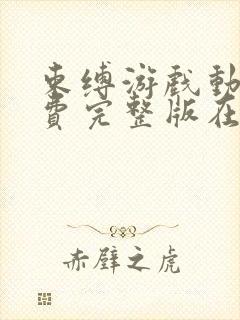 束缚游戏动
费完整版在
赤壁之虎